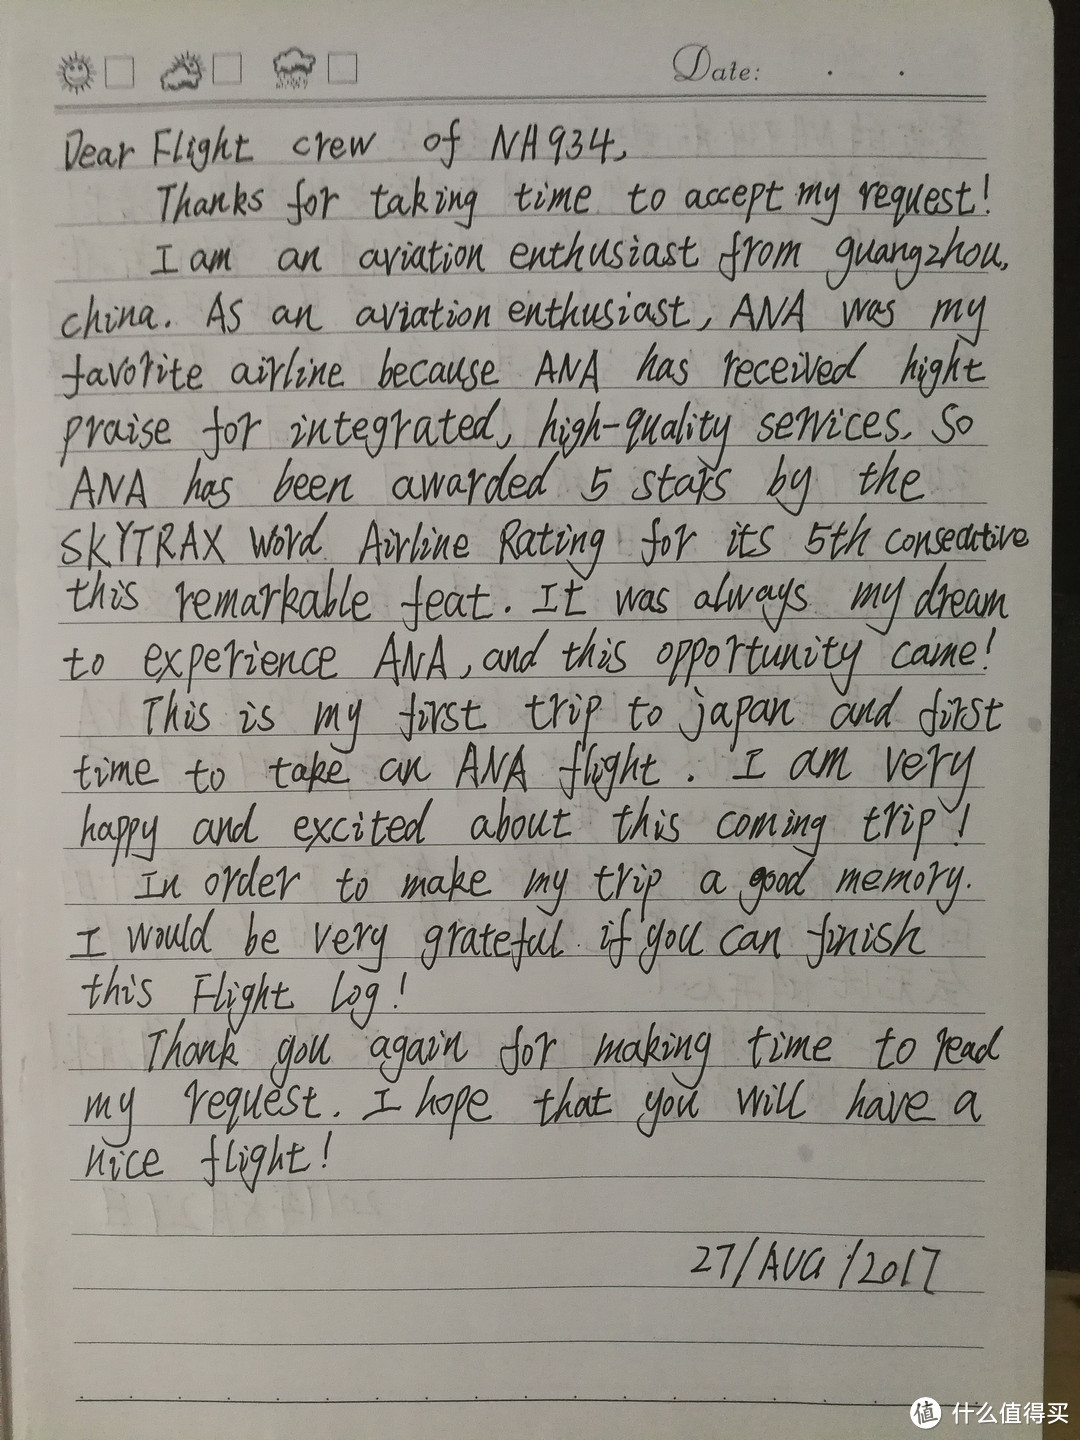 Date: . .
Dear Flight crew of NH934,
Thanks for taking time to accept my request!
I am an aviation enthusiast from guangzhou,
china. As an aviation enthusiast, ANA was my
favorite airline because ANA has received hight
praise for integrated, high-quality services. So
ANA has been awarded 5 stars by the
SKYTRAX Word Airline Rating for its 5th consecutive
this remarkable feat. It was always my dream
to experience ANA, and this opportunity came!
This is my first trip to japan and first
time to take an ANA flight. I am very
happy and excited about this coming trip!
In order to make my trip a good memory.
I would be very grateful if you can finish
this Flight Log!
Thank you again for making time to read
my request. I hope that you will have a
nice flight!
27/AUG/2017
值 什么值得买